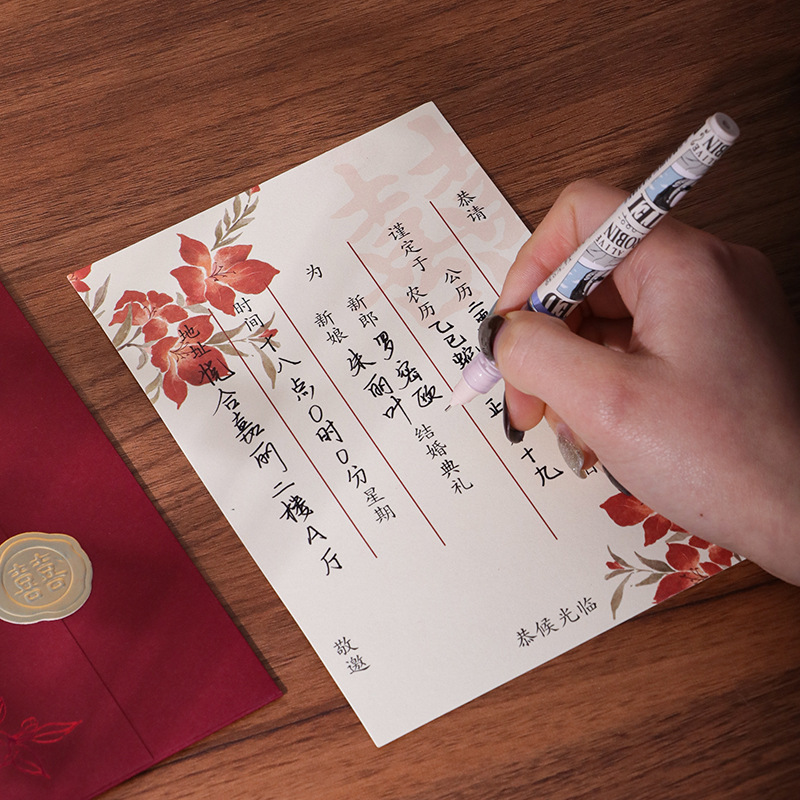 恭请
谨定于
公历 二
农历 乙巳蛇 正 十九
为
新郎 罗密欧
新娘 朱丽叶
结婚典礼
时间 十八点0时0分星期
地址 合嘉丽二楼A厅
敬邀
恭候光临
囍
ALIVE
ROBIN